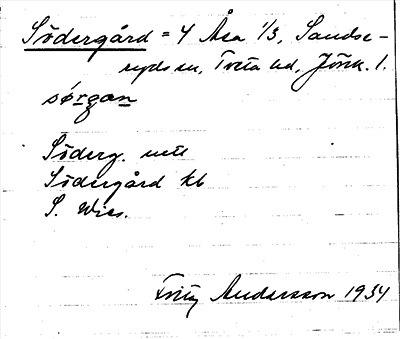 Södergård = 4 Åsa 1/3, Sandse-
ryds sn, Tveta hd, Jönk. l.
sørgan
Söderg. mtl
Södergård kb
S. Wiss.
Fritz Andersson 1934